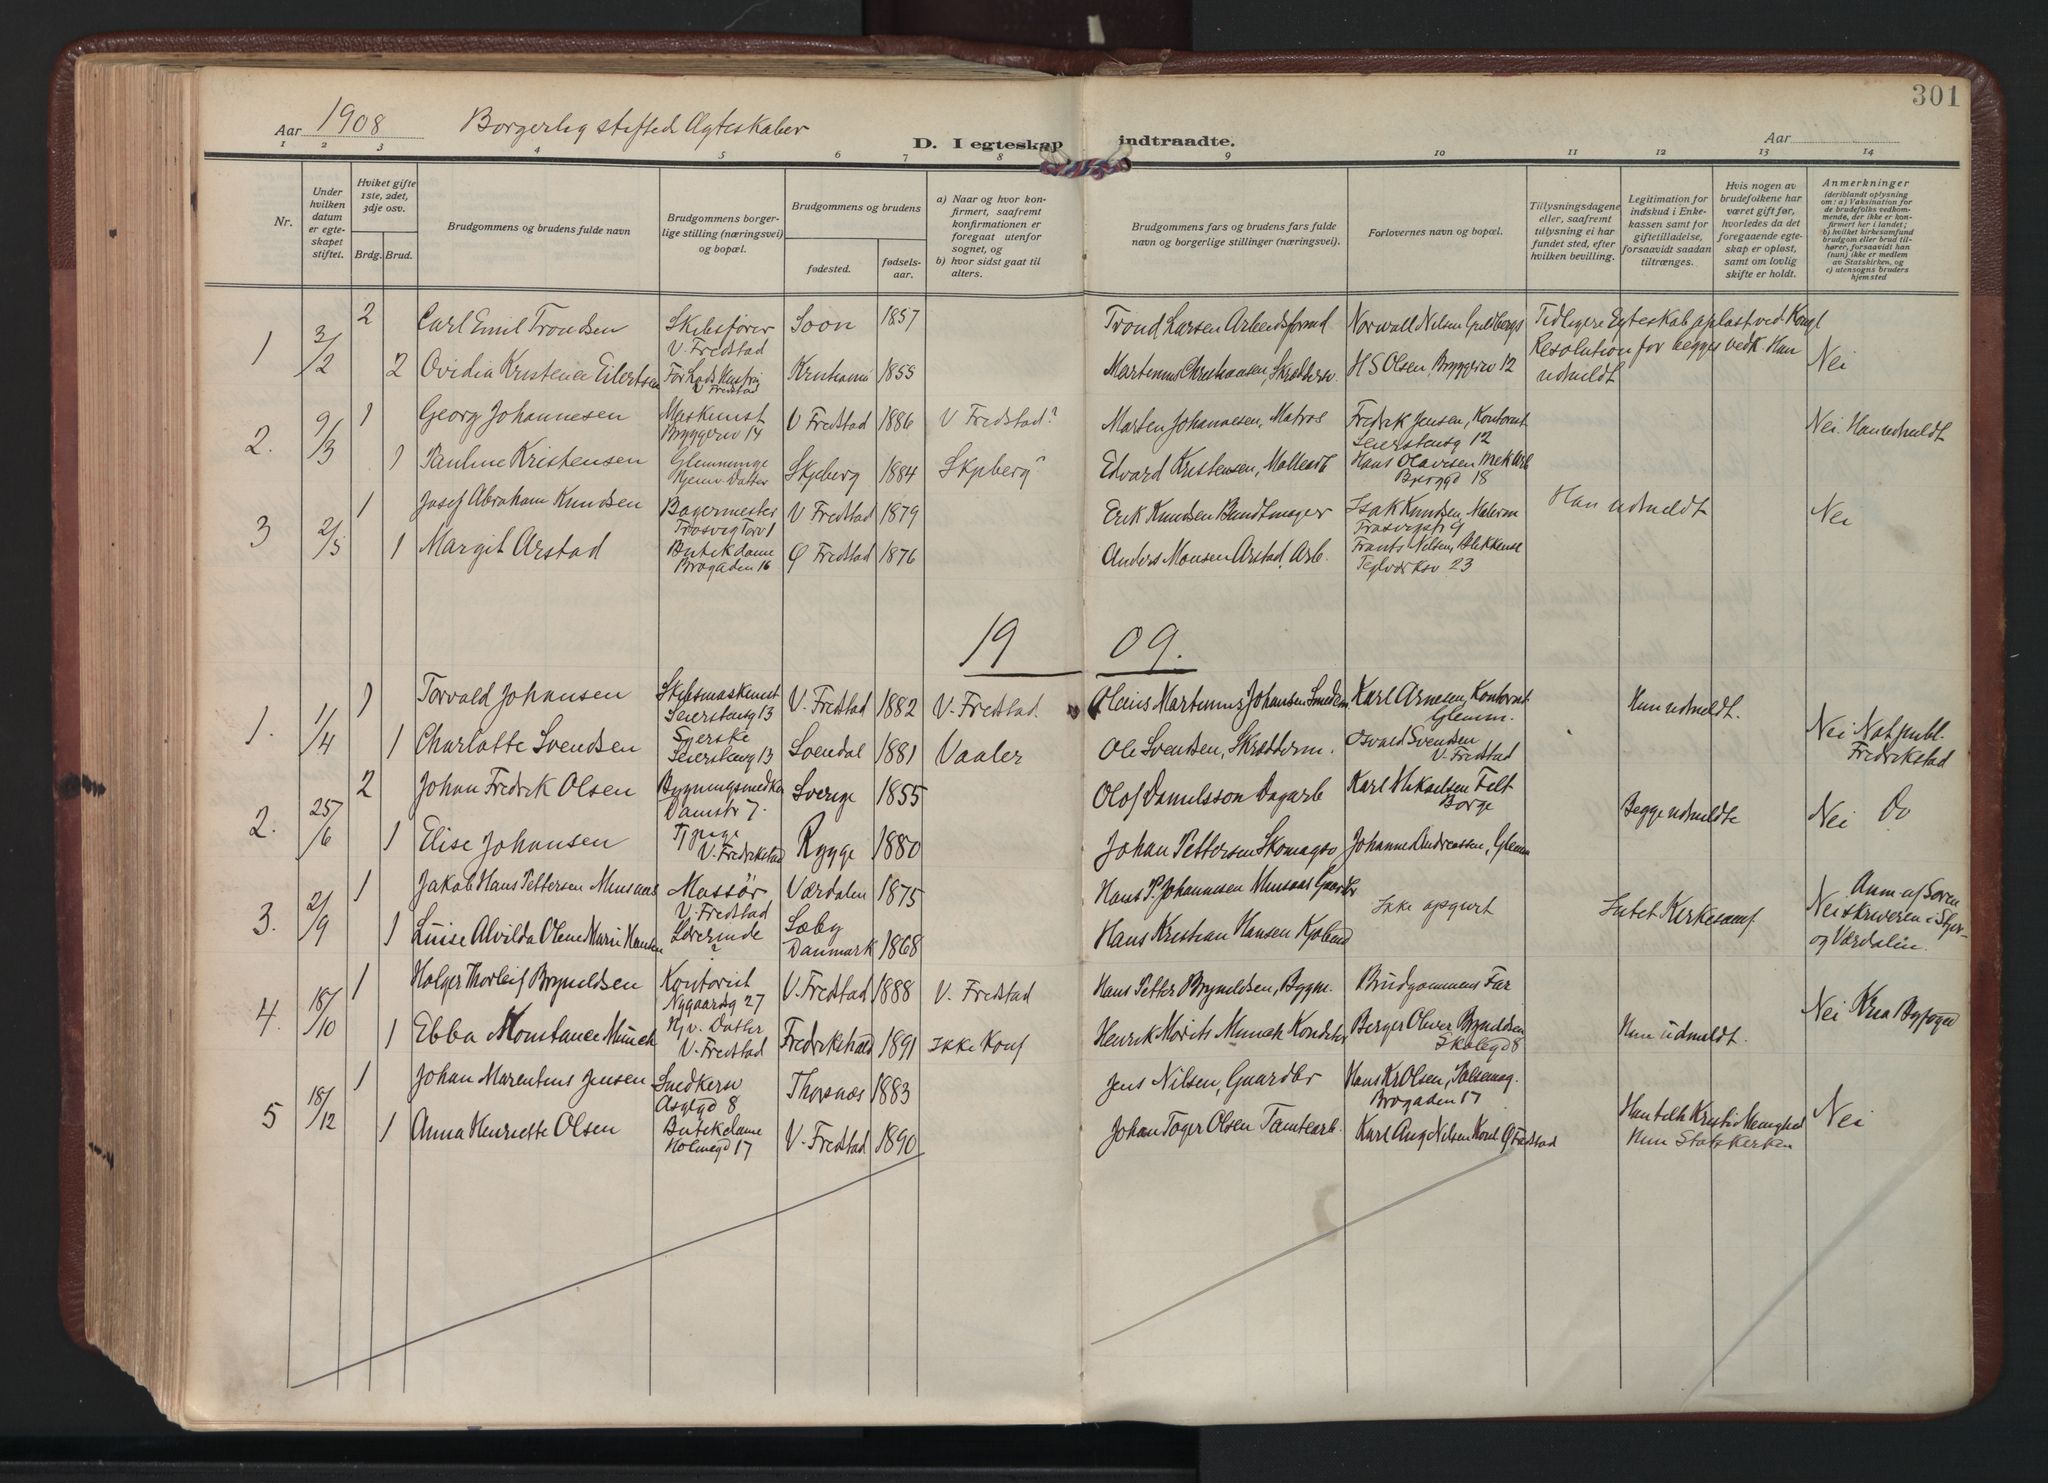 301
Aar 1908 Borgerlig stiftede Ægteskaber
D. I egteskap indtraadte.
Aar
1 2 3 4 5 6 7 8 9 10 11 12 13 14
Nr.
Under hvilken datum er egteskapet stiftet.
Hviket gifte 1ste, 2det, 3dje osv.
Brdg. Brud.
Brudgommens og brudens fulde navn
Brudgommens borgerlige stilling (næringsvei) og bopæl.
Brudgommens og brudens
fødested.
fødselsaar.
a) Naar og hvor konfirmert, saafremt konfirmationen er foregaat utenfor sognet, og
b) hvor sidst gaat til alters.
Brudgommens fars og brudens fars fulde navn og borgerlige stillinger (næringsvei).
Forlovernes navn og bopæl.
Tillysningsdagene eller, saafremt tillysning ei har fundet sted, efter hvilken bevilling.
Legitimation for indskud i Enkekassen samt for giftetilladelse, forsaavidt saadan tiltrænges.
Hvis nogen av brudefolkene har været gift før, hvorledes da det foregaaende egteskap er opløst, samt om lovlig skifte er holdt.
Anmerkninger
(deriblandt oplysning om: a) Vaksination for de brudefolks vedkommende, der ikke er konfirmert her i landet; b) hvilket kirkesamfund brudgom eller brud tilhører, forsaavidt han (hun) ikke er medlem av Statskirken, og c) utensogns bruders hjemsted
1 3/2 2 Carl Emil Trondsen Skibsfører V. Fredstad Soon 1857 Trond Larsen Arbeidsformd Norwall Nilsen Guldbergs Tidligere Egteskab opløst ved Kongl
2 Ovidia Kristence Eilertsen Forhads Hustru V Fredstad Kristiania 1855 Martinius Christiansen, Skræddersv. H S Olsen Bryggerv 12 Resolution for begges vedk. Han udmeldt Nei
2. 9/3 1 Georg Johannesen Maskinist Bryggerv 14 V Fredstad 1886 V Fredstad? Martin Johannesen, Matros Fredrik Jensen, Kontorist Seierstensg 12 Nei. Han udmeldt
1 Pauline Kristensen Glemminge Hjemv. Datter Skjeberg 1884 Skjeberg? Edvard Kristensen, Møllearb Hans Olavesen Mek Arb Brogd 18
3 2/5 1 Josef Abraham Knudsen Bagermester Trosvig Torv 1 V Fredstad 1879 Erik Knudsen Bundtmager Isak Knudsen, Malerm Trosvigstr 9 Han udmeldt Nei
1 Margit Arstad Butikdame Brogaden 16 Ø Fredstad 1876 Anders Monsen Arstad, Arb. Frants Nilsen, Blikkensl Teglværksv 23
1909.
1. 1/4 1 Torvald Johansen Skibsmaskinist Seierstensg 13 V. Fredstad 1882 V. Fredstad Olaus Martinius Johansen Smedem Karl Arnesen, Kontorist Glemm. Hun udmeldt.
1 Charlotte Svendsen Syerske Seierstensg 13 Soendal 1881 Vaaler Ole Svendsen, Skrædderm. Osvald Svendsen V. Fredstad Nei Not publ. Fredrikstad
2. 25/6 2 Johan Fredrik Olsen Bygningssnedker Damstr 7. Sverige 1855 Olof Danielsson Dagarb Karl Mikaelsen Felt Borge Begge udmeldte Nei Do
1 Elise Johansen Tjpige V. Fredrikstad Rygge 1880 Johan Pettersen Skomagsv Johannes Andreassen, Glemm
3. 2/9 1 Jakob Hans Pettersen Minsaas Massør V. Fredstad Værdalen 1875 Hans P. Johannesen Minsaas Gaardbr Ikke opgivet Intet Kirkesamf Anm af Soren
1 Luise Alvilda Olene Marie Hansen Lærerinde Sæby Danmark 1868 Hans Kristian Hansen Kjøbmd Nei skriveren i Stjør- og Værdalen.
4. 18/10 1 Holger Thorleif Bryneldsen Kontorist Nygaardsg 27 V. Fredstad 1888 V. Fredstad Hans Petter Bryneldsen, Bygm. Brudgommens Far
1 Ebba Konstance Münch Hjv. Datter V. Fredstad Fredrikshald 1891 Ikke Konf Henrik Morits Munch Konditor Berger Oliver Bryneldsen Skolegd 8 Hun udmeldt. Nei Kria Byfoged
5 18/12 1 Johan Marentius Jensen Snedkersv Asylgd 8 Thorsnæs 1883 Jens Nilsen, Gaardbr Hans Kr Olsen, Pølsemag. Brogaden 17
1 Anna Henriette Olsen Butikdame Holmegd 17 V. Fredstad 1890 Johan Toger Olsen Tomtearb. Karl Aug Nilsen Kont Ø Fredstad Han tilh Kristi Menighed Hun Statskirken Nei